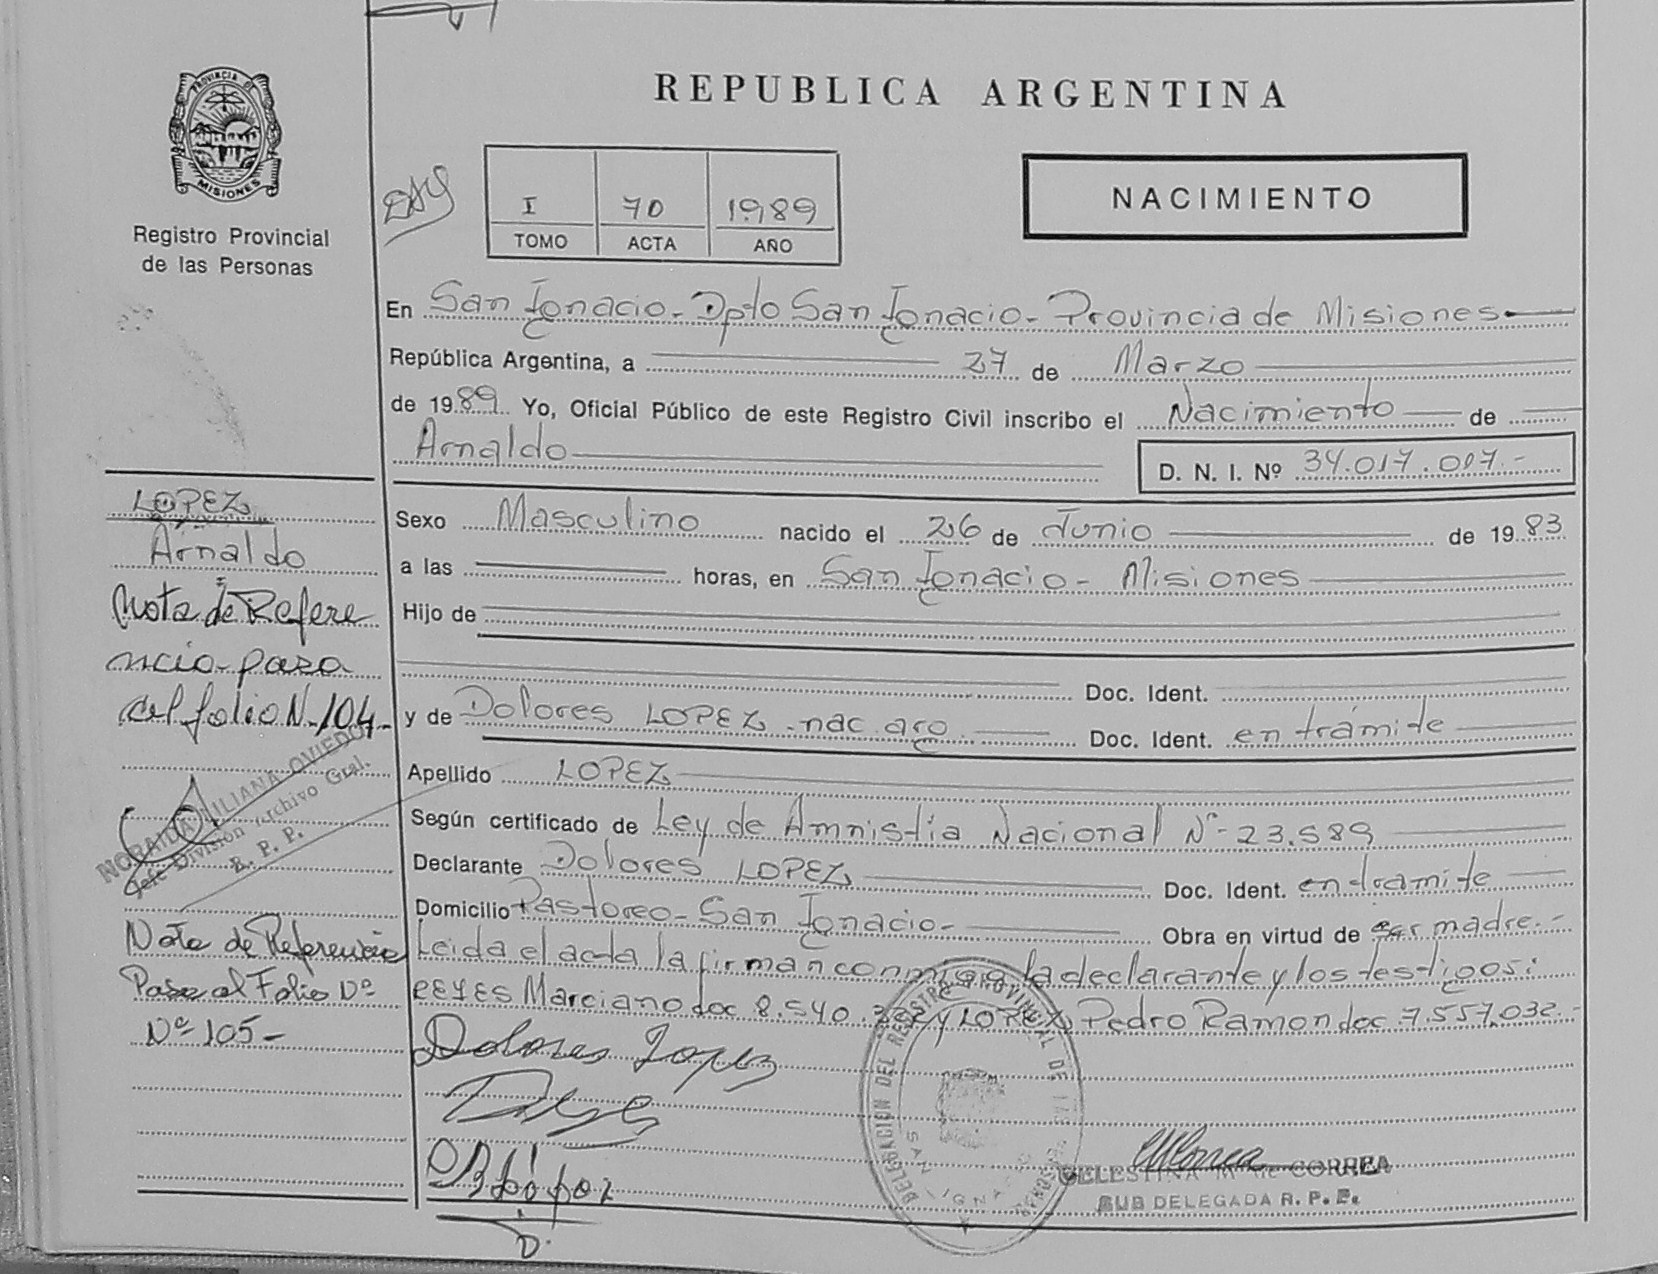 REPUBLICA ARGENTINA
PROVINCIA DE
MISIONES
Registro Provincial
de las Personas
I 70 1989
TOMO ACTA AÑO
NACIMIENTO
En San Ignacio - Dpto San Ignacio - Provincia de Misiones
República Argentina, a 27 de Marzo
de 1989 Yo, Oficial Público de este Registro Civil inscribo el Nacimiento de
Arnaldo
D. N. I. Nº 34.017.007.-
Sexo Masculino nacido el 26 de Junio de 1983
a las horas, en San Ignacio - Misiones
Hijo de
Doc. Ident.
y de Dolores LOPEZ - nac. arg. Doc. Ident. en trámite
Apellido LOPEZ
Según certificado de Ley de Amnistía Nacional Nº - 23.589
Declarante Dolores LOPEZ Doc. Ident. en tramite
Domicilio Pastoreo - San Ignacio - Obra en virtud de ser madre.-
Leida el acta la firman conmigo la declarante y los testigos:
REYES Marciano doc 8.540. y LOPEZ Pedro Ramon doc 7.557.032.-
Dolores Lopez
DELEGACION DEL REGISTRO PROVINCIAL DE LAS PERSONAS
SAN IGNACIO
CELESTINA M. de CORREA
SUB DELEGADA R. P. P.
LOPEZ
Arnaldo
Nota de Refere
ncia - pasa
al folio N-104-
NORAIDA LILIANA OVIEDO
Jefe División Archivo Gral.
R. P. P.
Nota de Referencia
Pasa al Folio Nº
Nº 105-